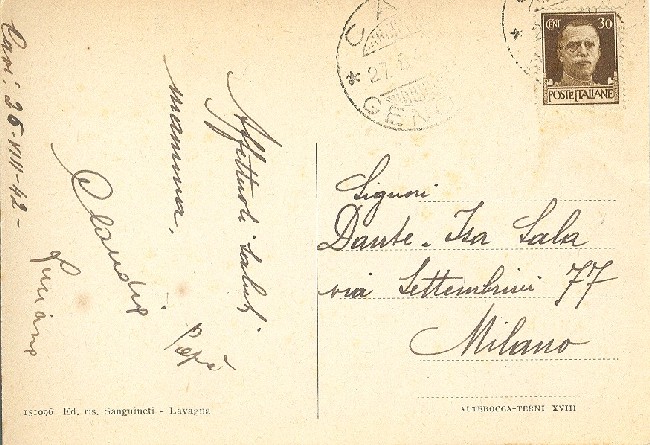 Cavi 26-VIII-42-
Affettuosi saluti
mamma,
Papà
Claudio
Luciana
CA
27.8
GENO
CENT 30
POSTE ITALIANE
Signori
Dante - Isa Sala
via Settembrini 77
Milano
Ed. ris. Sanguineti - Lavagna
ALTEROCCA-TERNI XVIII